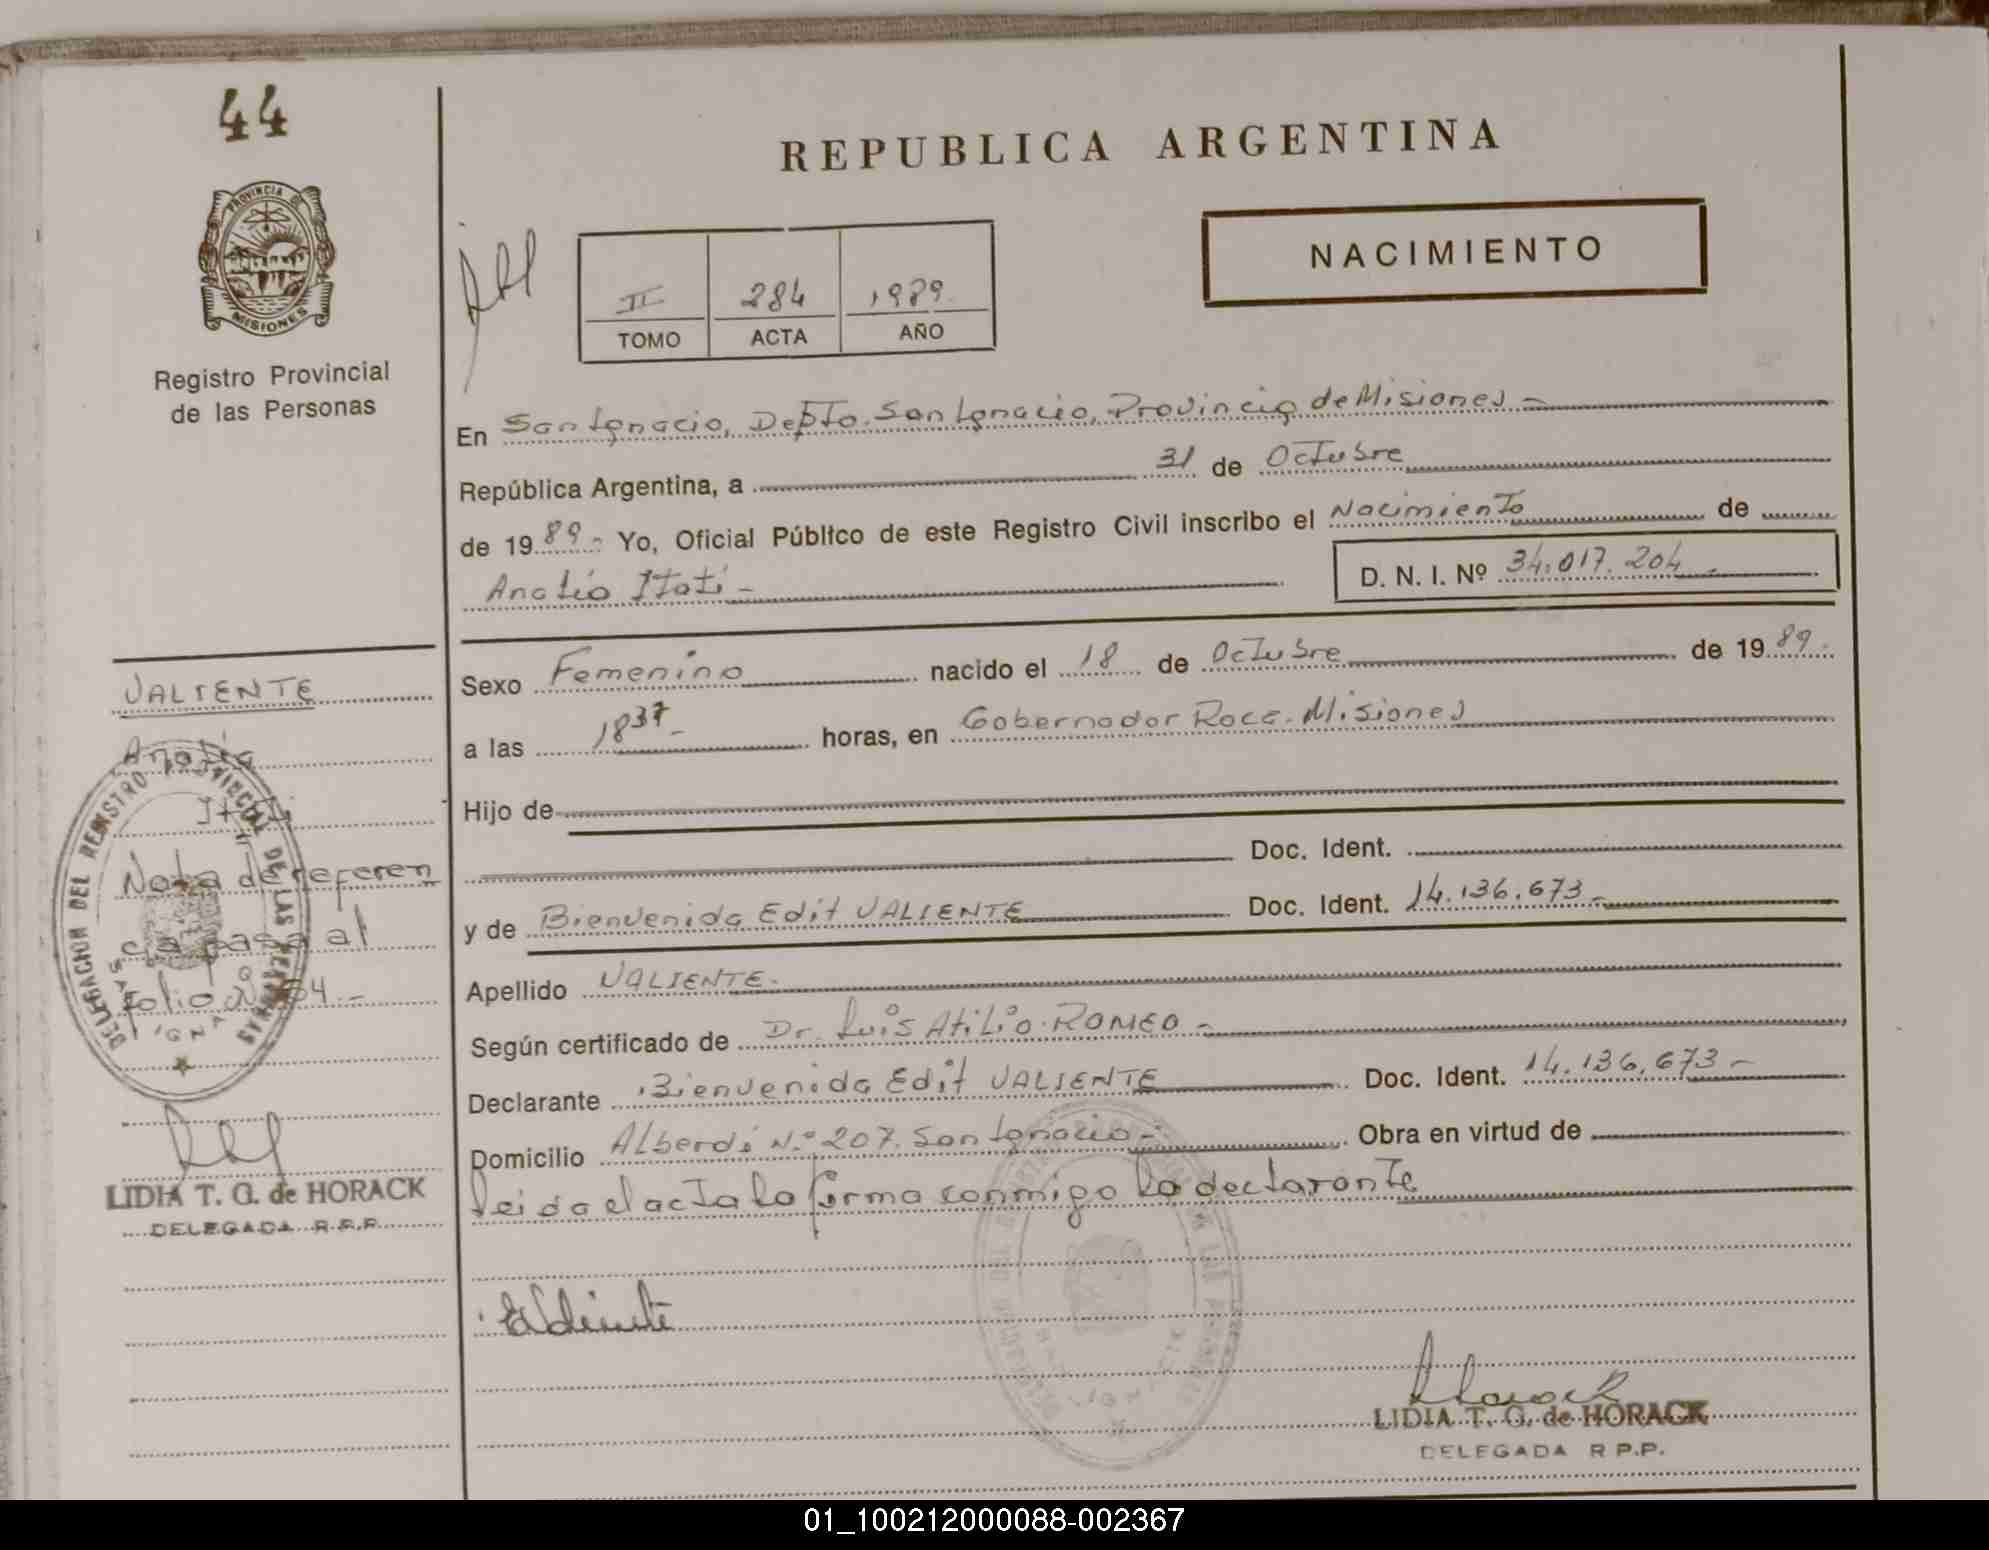 44
PROVINCIA DE
MISIONES
Registro Provincial
de las Personas
REPUBLICA ARGENTINA
NACIMIENTO
II 284 1989
TOMO ACTA AÑO
En San Ignacio, Depto. San Ignacio, Provincia de Misiones -
República Argentina, a 31 de Octubre
de 1989.- Yo, Oficial Público de este Registro Civil inscribo el Nacimiento de
Analia Itati - D. N. I. Nº 34.017.204 -
Sexo Femenino nacido el 18 de Octubre de 1989.-
a las 1837- horas, en Gobernador Roca. Misiones
Hijo de
Doc. Ident.
y de Bienvenida Edit VALIENTE Doc. Ident. 14.136.673.-
Apellido VALIENTE.
Según certificado de Dr. Luis Atilio ROMEO -
Declarante Bienvenida Edit VALIENTE Doc. Ident. 14.136.673 -
Domicilio Alberdi N.º 207. San Ignacio - Obra en virtud de
Leida el acta la firma conmigo la declarante
Valiente
Horack
LIDIA T. G. de HORACK
DELEGADA R P.P.
VALIENTE
Analia
Itati
Nota de referen
cia pasa al
folio Nº 64.-
DELEGACION DEL REGISTRO PROVINCIAL DE LAS PERSONAS
SAN IGNACIO
LIDIA T. G. de HORACK
DELEGADA R.P.P.
01_100212000088-002367